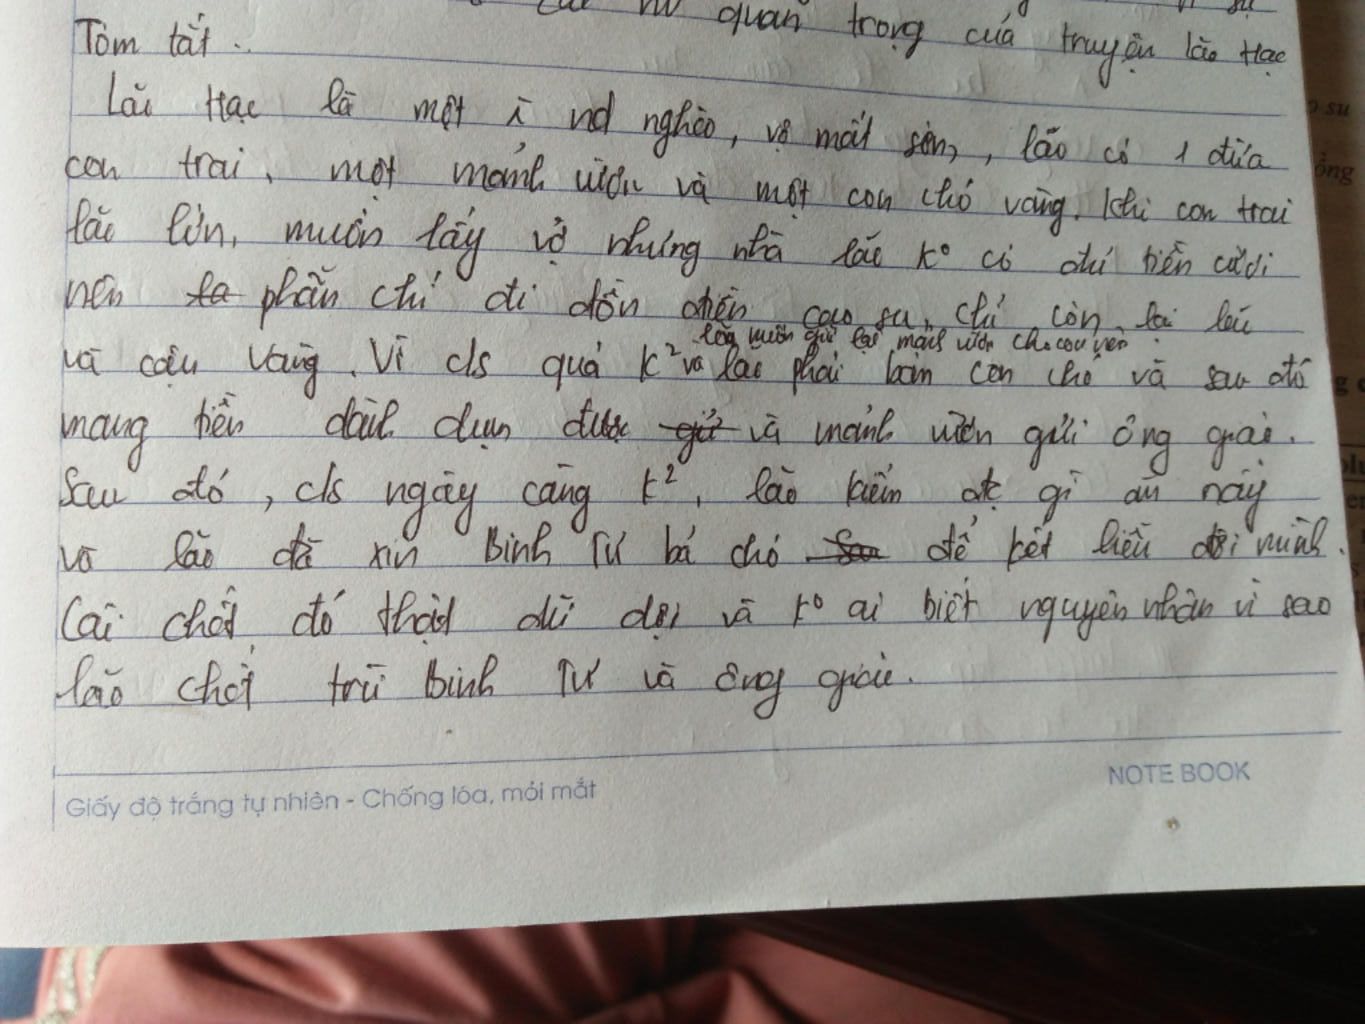 quan trọng của truyện lão Hạc
Tóm tắt.
Lão Hạc là một nd nghèo, vợ mất sớm, lão có 1 đứa
con trai, một mảnh vườn và một con chó vàng. Khi con trai
lão lớn, muốn lấy vợ nhưng nhà lão k° có đủ tiền cưới
nên phẫn chí đi đồn điền cao su, chỉ còn lại lão
và cậu Vàng. Vì cls quá k² và lão phải bán con chó và sau đó
lão muốn giữ lại mảnh vườn cho con nên
mang tiền dành dụm được và mảnh vườn gửi ông giáo.
Sau đó, cls ngày càng k², lão kiếm đc gì ăn nấy
và lão đã xin Binh Tư bả chó để kết liễu đời mình.
Cái chết đó thật dữ dội và k° ai biết nguyên nhân vì sao
lão chết trừ Binh Tư và ông giáo.
Giấy độ trắng tự nhiên - Chống lóa, mỏi mắt
NOTE BOOK